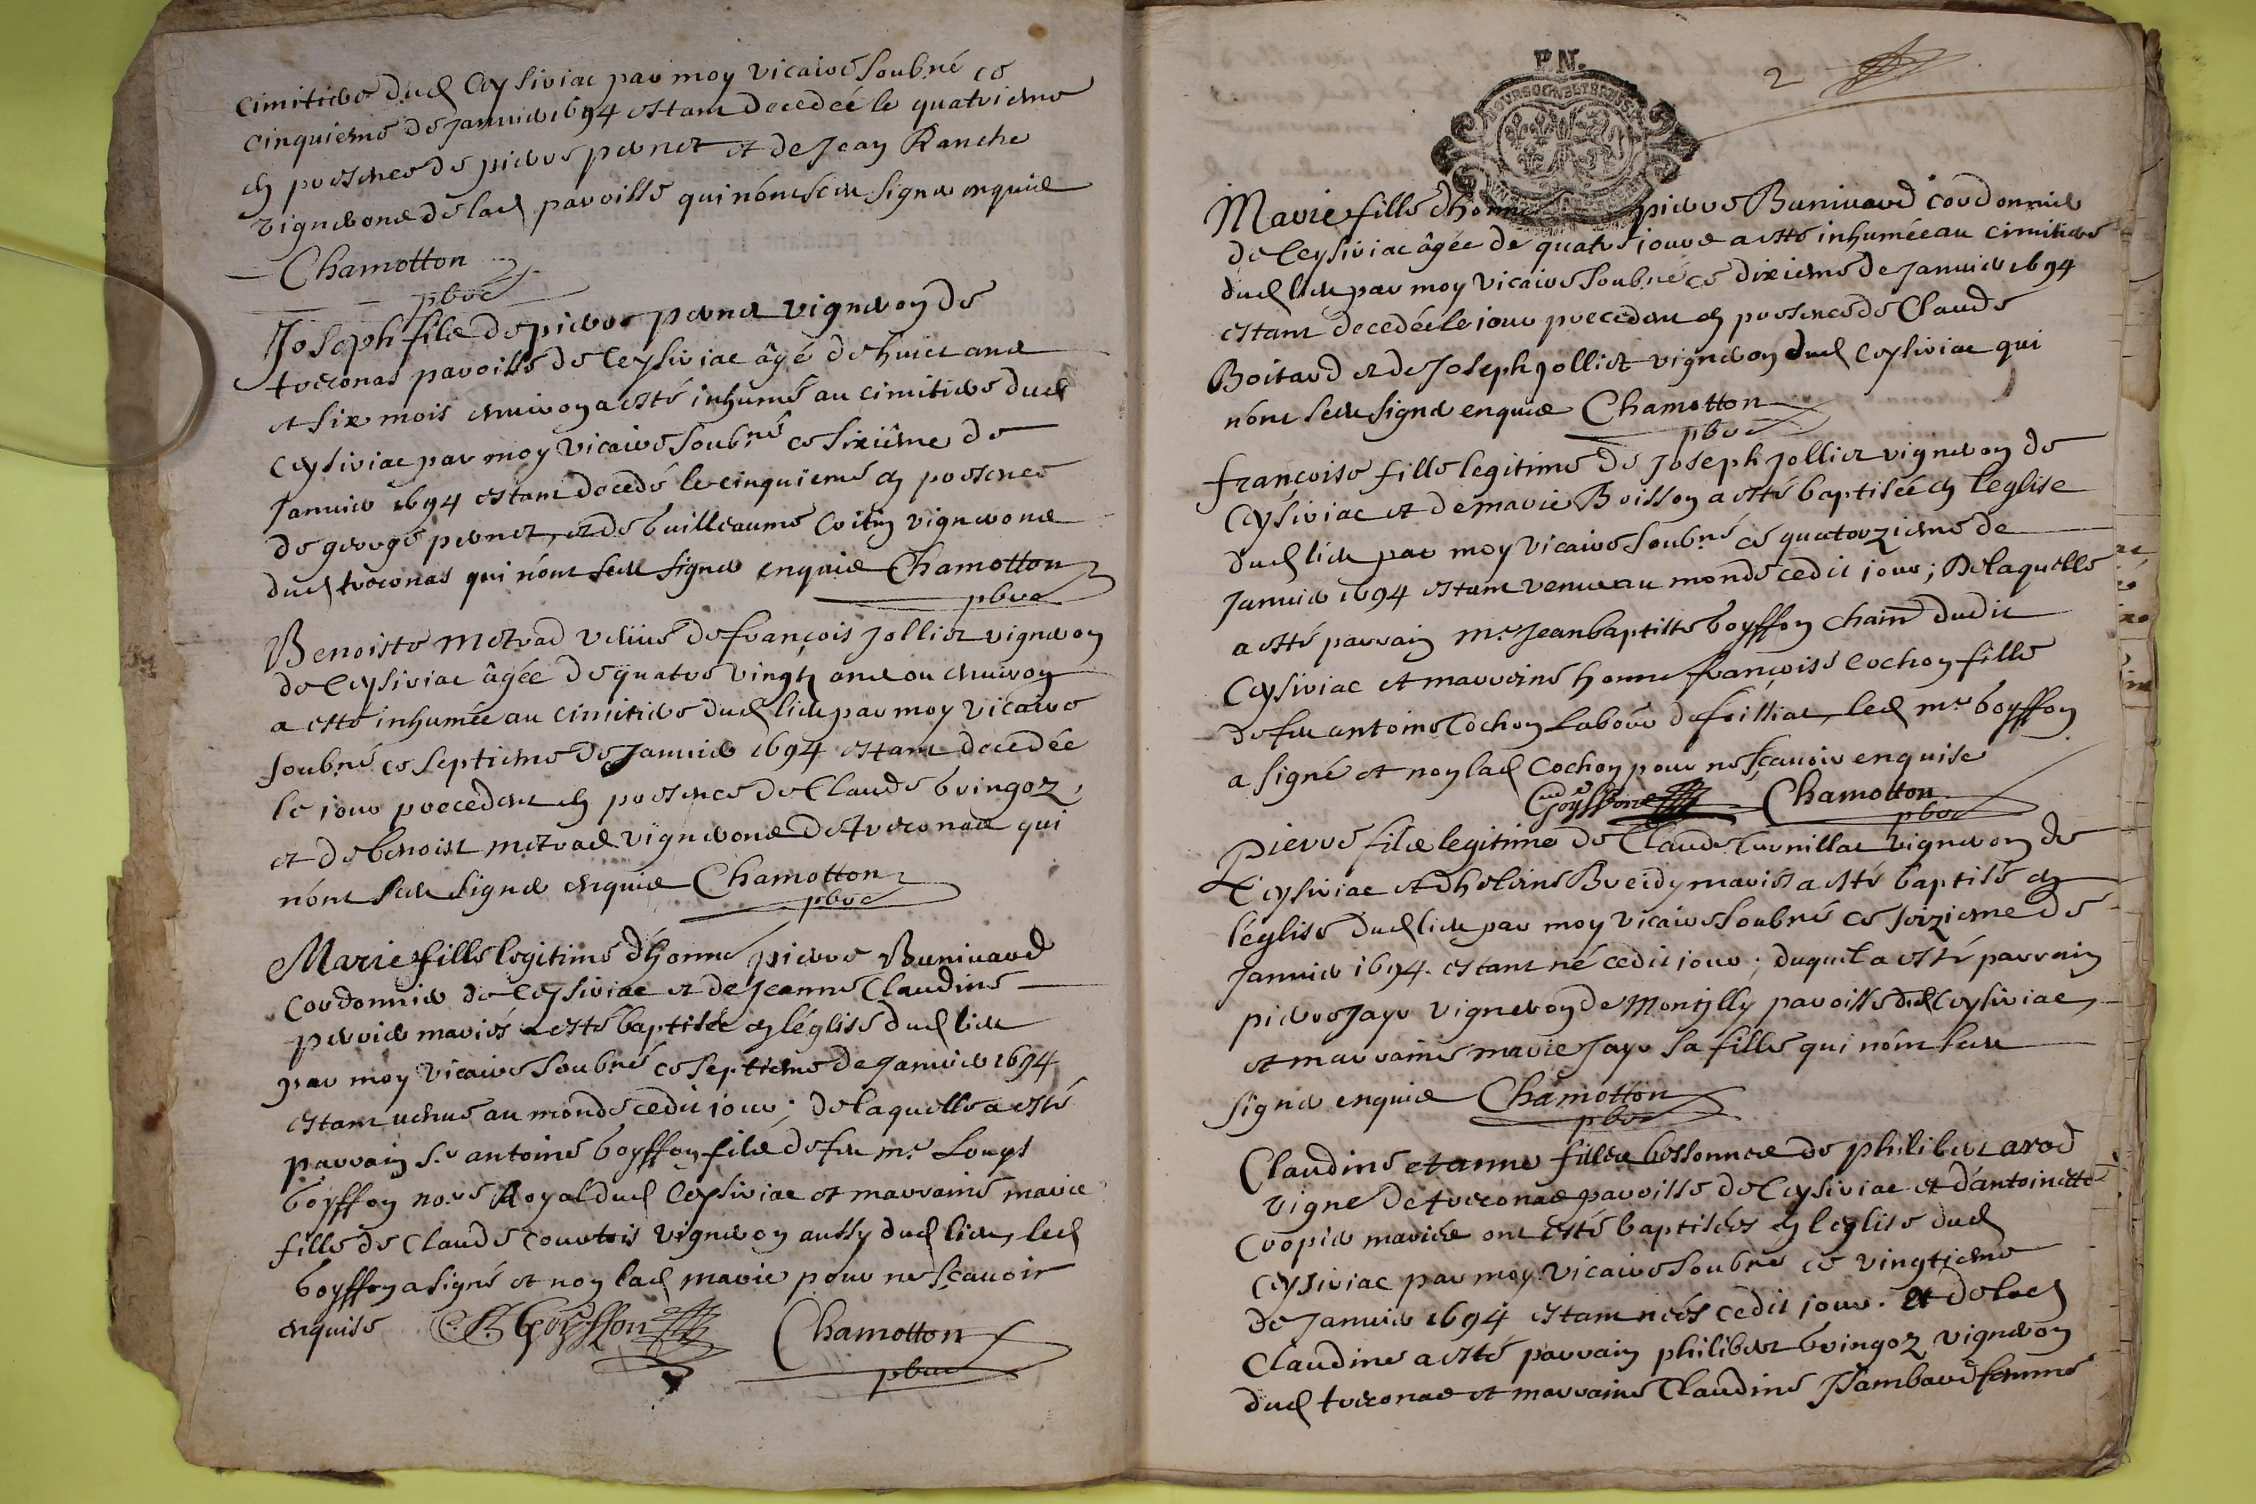 cimitiere dud Ceysiriac par moy vicaire soubné ce
cinquieme de Janvier 1694 estant decedeé le quatrieme
en presence de pierre pernet et de Jean Ranche
vignerons de lad paroisse qui n'ont sceu signer enquis
Chamotton
pbre
Joseph fils de pierre perner vigneron de
treconas paroisse de Ceysiriac âgé de huict ans
et six mois environ a esté inhumé au cimitiere dud
Ceysiriac par moy vicaire soubné ce sixiême de
Janvier 1694 estant decedé le cinquieme en presence
de george pernet, et de Guilleaume vignerons
dud treconas qui n'ont sceu signer enquis Chamotton
pbre
Benoiste metrad veuve de françois Jollier vigneron
de Ceysiriac âgée de quatre vingt ans ou environ
a esté inhumée au cimitiere dud lieu par moy vicaire
soubné ce septieme de Janvier 1694 estant decedée
le jour precedent en presence de Claude bringoz,
et de benoist metrad vignerons de treconas qui
n'ont sceu signer enquis Chamotton
pbre
Marie fille legitime d'honne pierre Bunivard
Cordonnier de Ceysiriac et de Jeanne Claudine
perrier mariés a esté baptisée en l'église dud lieu
par moy vicaire soubné ce septieme de Janvier 1694
estant venue au monde cedit jour; de laquelle a esté
parrain Sr antoine boysson fils de feu mr Louys
boysson nore Royal dud Ceysiriac et marraine marie
fille de Claude Courtois vigneron aussy dud lieu, led
boysson a signé et non lad marie pour ne sçavoir
enquise Boysson Chamotton
pbre
P.N.
2
Marie fille d'honne pierre Bunivard Cordonnier
de Ceysiriac âgée de quatre jours a esté inhumée au cimitiere
dud lieu par moy vicaire soubné ce dixieme de Janvier 1694
estant decedée le jour precedent en presence de Claude
Boitard et de Joseph Jollier vigneron dud Ceysiriac qui
n'ont sceu signer enquis Chamotton
pbre
françoise fille legitime de Joseph Jollier vigneron de
Ceysiriac et de marie Boisson a esté baptisée en l'eglise
dud lieu par moy vicaire soubné ce quatorzieme de
Janvier 1694 estant venue au monde cedit jour; De laquelle
a esté parrain mr Jean baptiste boysson dudit
Ceysiriac et marreine honne françoise Cochon fille
de feu antoine Cochon led mr boysson
a signé et non lad Cochon pour ne sçavoir enquise
Boysson Chamotton
pbre
Pierre fils legitime de Claude vigneron de
Ceysiriac et d'helene mariés a esté baptisé en
l'église dud lieu par moy vicaire soubné ce seizieme de
Janvier 1694. estant né cedit jour; duquel a esté parrain
pierre Jayr vigneron de Montjlly paroisse dud Ceysiriac,
et marraine marie Jayr sa fille qui n'ont sceu
signer enquis Chamotton
pbre
Claudine et anne filles bessonnes de philiber arod
vigne de treconas paroisse de Ceysiriac et d'antoinette
Cropier mariés ont esté baptisées en l'eglise dud
Ceysiriac par moy vicaire soubné ce vingtieme
de Janvier 1694 estant neés cedit jour. Et de lad
Claudine a esté parrain philiber bringoz vigneron
dud treconas et marraine Claudine femme